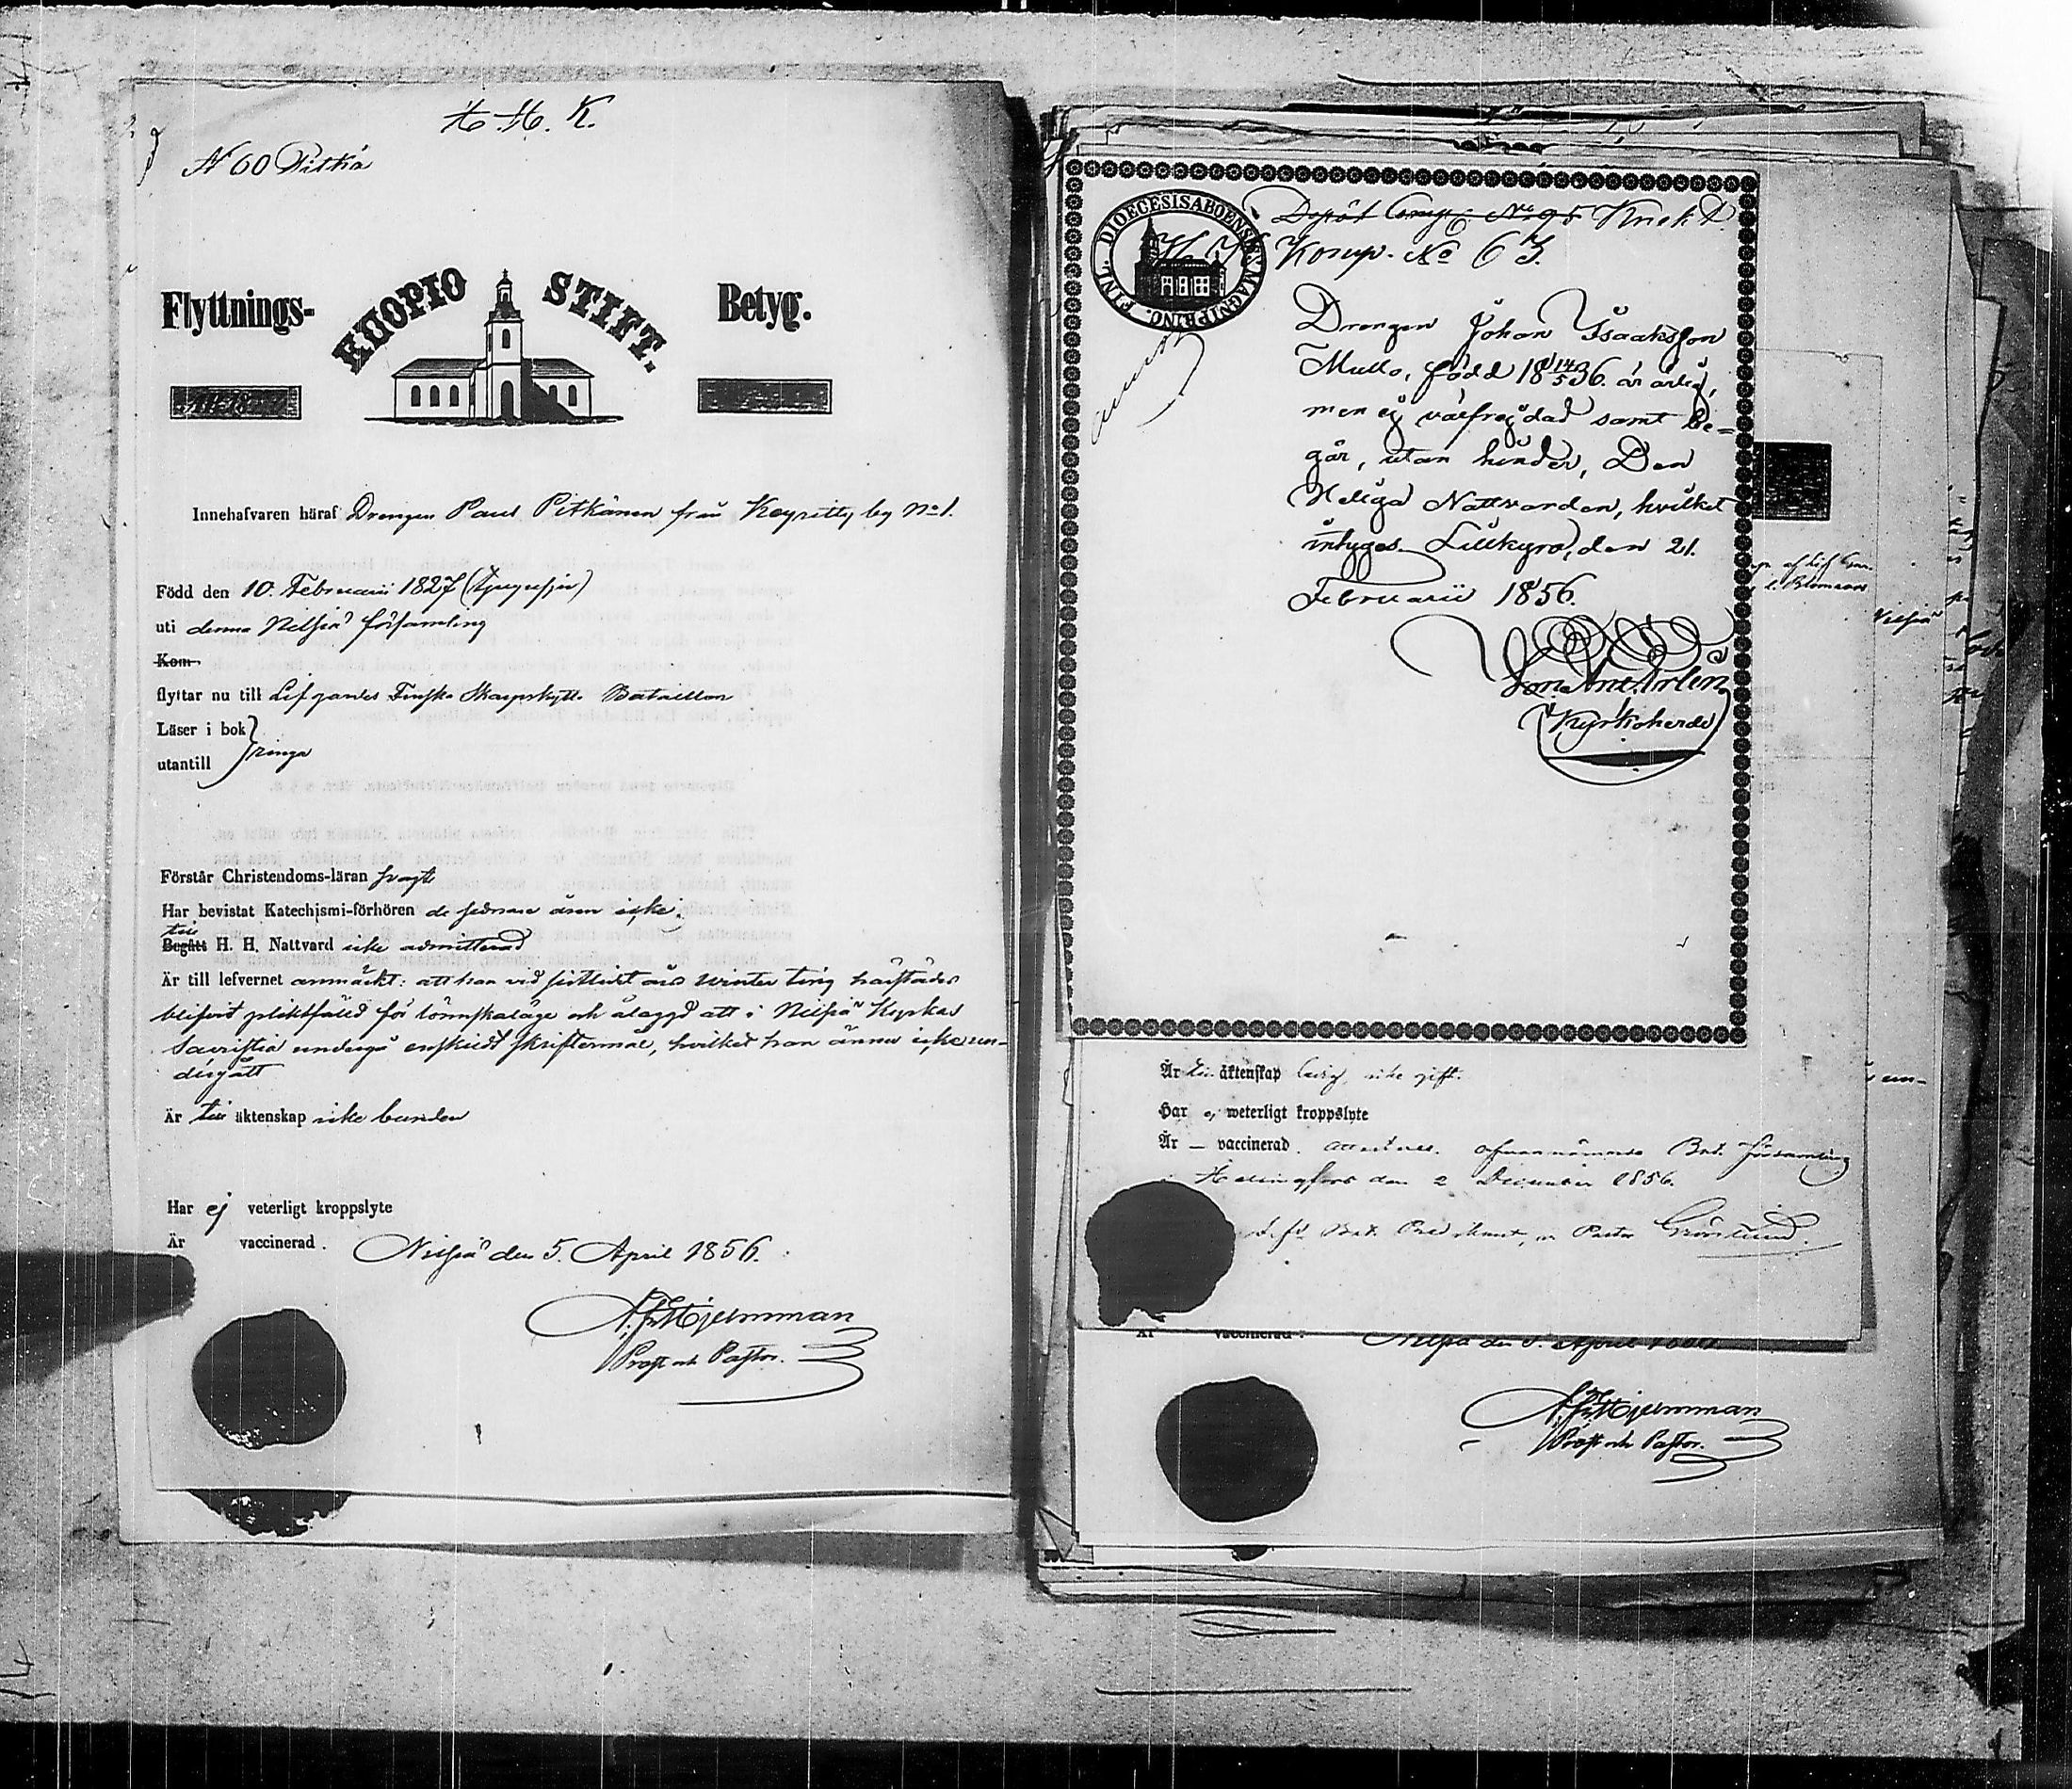 H. H. K.
N 60 Pitkä
Flyttnings- KUOPIO STIFT. Betyg.
Innehafvaren häraf Drengen Paul Pitkänen från Keyritty by No 1.
Född den 10. Februarii 1827 (tjugusju)
uti denna Nilsiä församling
Kom
flyttar nu till Lifgardes Finska Skarpskytte Bataillon
Läser i bok
utantill ringa
Förstår Christendoms-läran svagt
Har bevistat Katechismi-förhören de sednare åren icke.
till
Begått H. H. Nattvard icke admitterad
Är till lefvernet anmärkt: att han vid sistlidit års Winter ting härstädes
blifvit pliktfälld för lönnskaläge och ålaggd att i Nilsiä Kyrkas
Sacristia undergå enskildt skriftermål, hvilket han ännu icke un-
dergått
Är till äktenskap icke bunden
Har ej veterligt kroppslyte
Är vaccinerad.
Nilsiä den 5. April 1856.
Hjermman
Prost och Pastor.
FINL. DIOECESIS ABOENSIS MAGNI PRINC.
Depôt Comp. No 95 Knekt
Komp. No 63.
Drengen Johan Isaaksson
Mullo, född 18 14/5 36. är ärlig,
men ej välfrejdad samt be-
går, utan hinder, Den
Heliga Nattvarden, hvilket
intygas. Lillkyro, den 21.
Februarii 1856.
Kyrkoherde
Nilsiä
Är till äktenskap ledig, icke gift.
Har ej weterligt kroppslyte
Är — vaccinerad. attesteras. ofvannämnde Bat. församling
Helsingfors den 2 December 1856.
Pastor Grönlund.
Är vaccinerad.
Nilsiä den 5. April
Hjermman
Prost och Pastor.